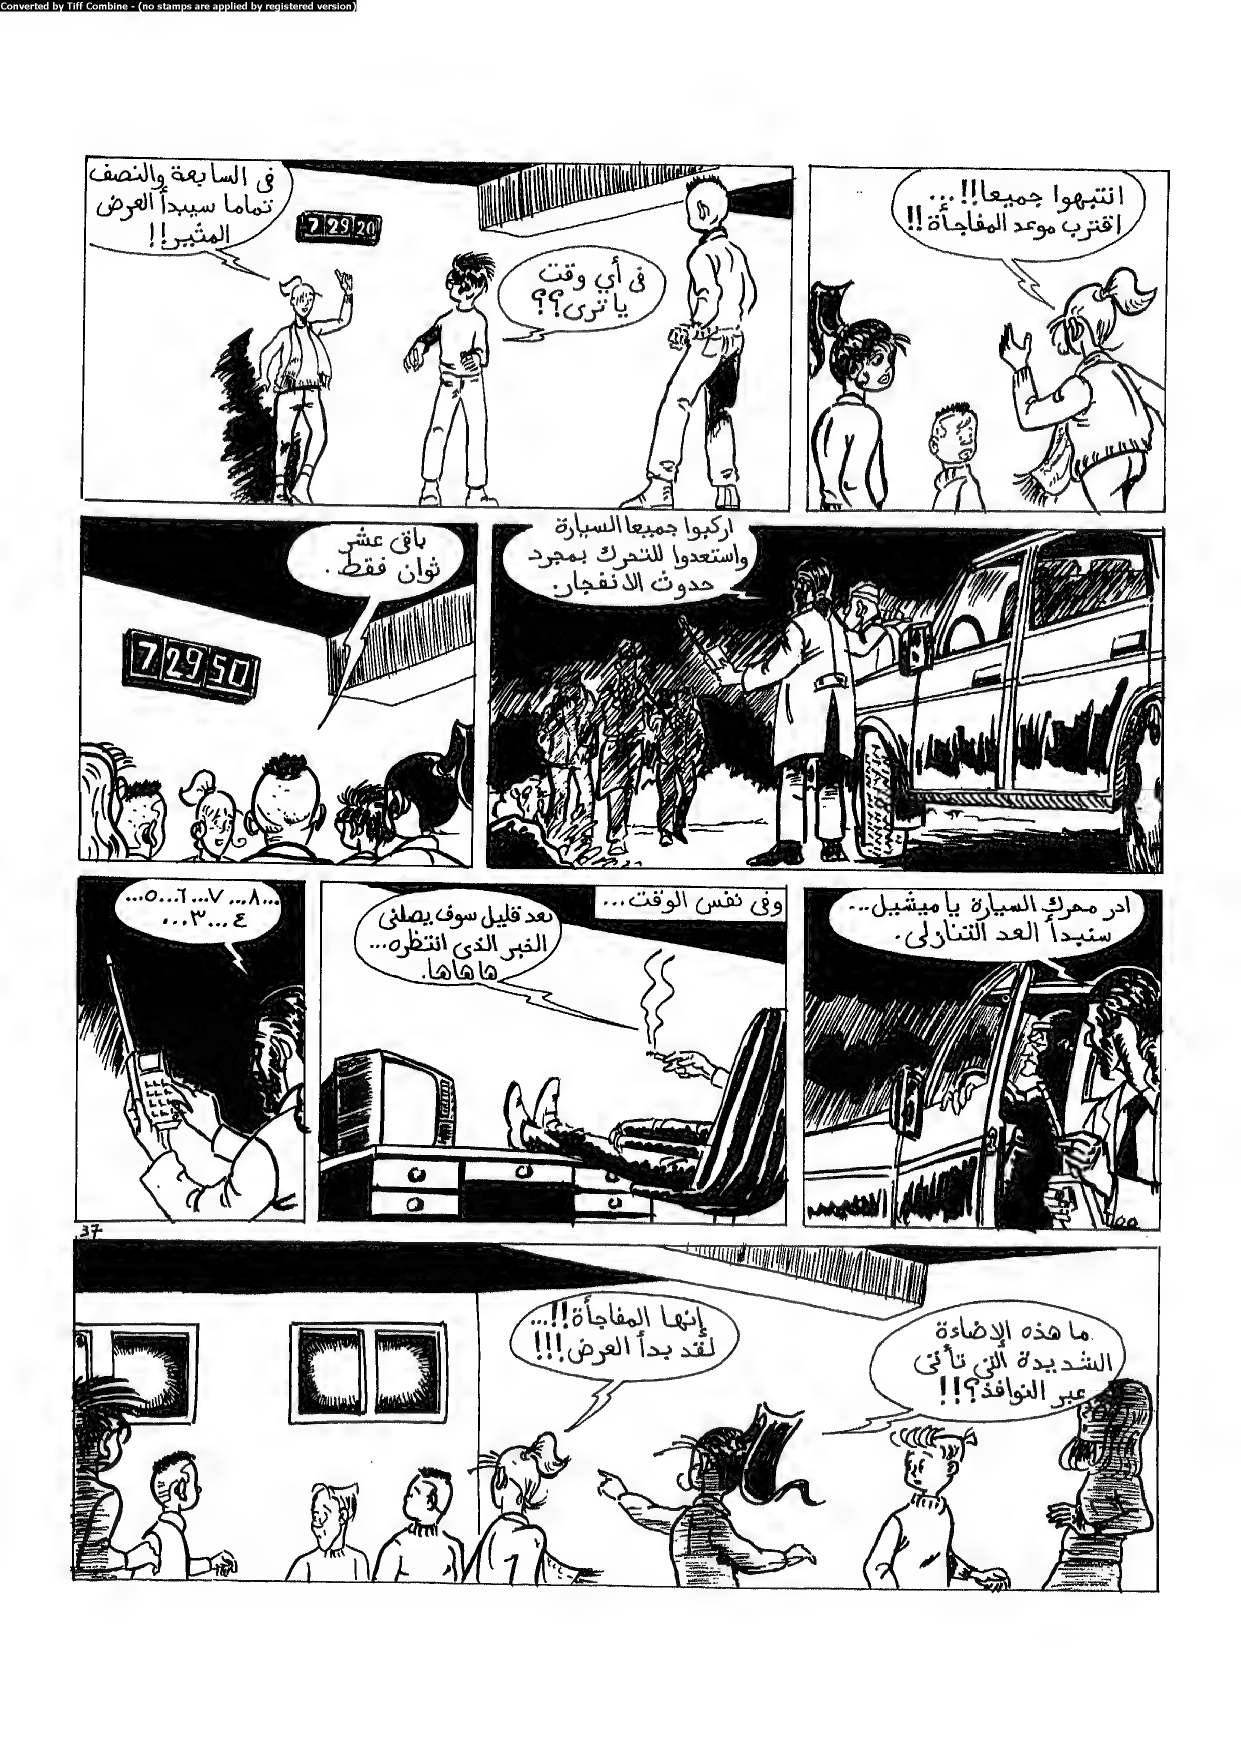 Converted by Tiff Combine - (no stamps are applied by registered version)
انتبهوا جميعا!!...
اقترب موعد المفاجأة!!
فى أي وقت
يا ترى؟؟
فى السابعة والنصف
تماما سيبدأ العرض
المثير!!
7 29 20
اركبوا جميعا السيارة
واستعدوا للتحرك بمجرد
حدوث الانفجار.
باقى عشر
ثوان فقط.
7 29 50
ادر محرك السيارة يا ميشيل...
سنبدأ العد التنازلى.
وفى نفس الوقت...
بعد قليل سوف يصلنى
الخبر الذى انتظره...
ها ها ها.
...٨...٧...٦...٥...
٤...٣...
37
ما هذه الإضاءة
الشديدة التى تأتى
عبر النوافذ؟!!
إنها المفاجأة!!...
لقد بدأ العرض!!!